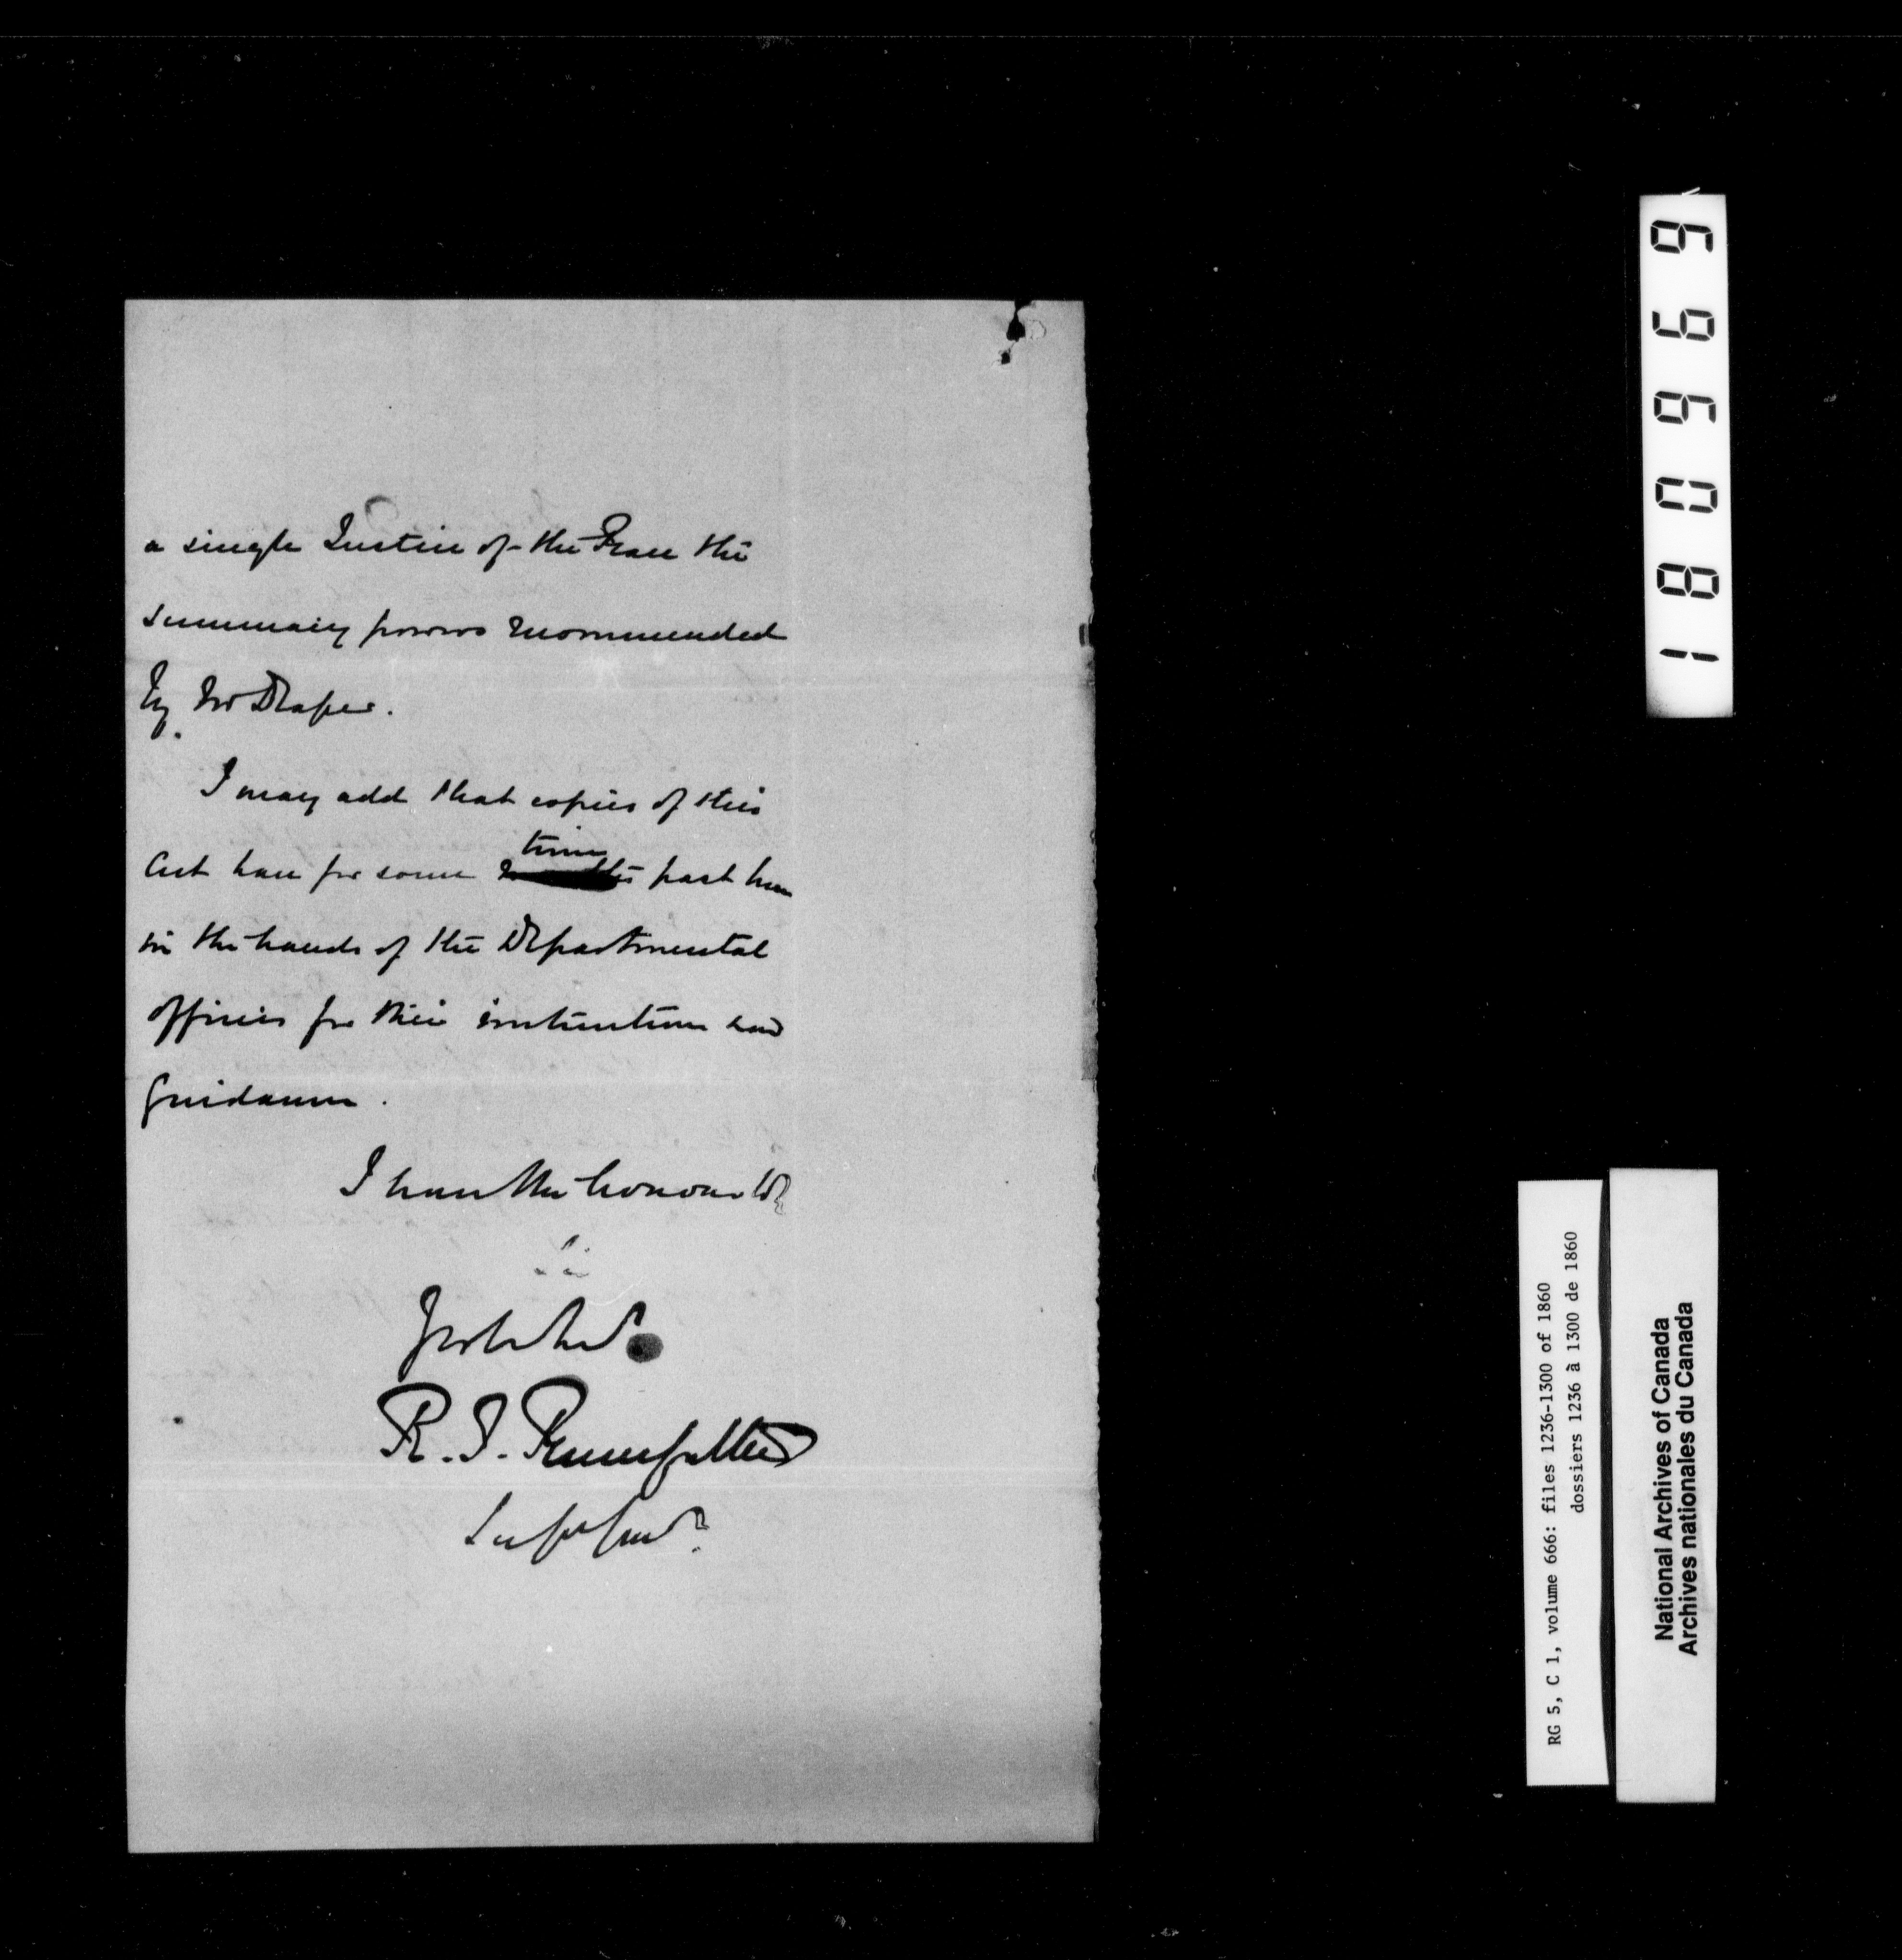 a single Justice of the Peace the
summary powers recommended
by Mr Draper.
I may add that copies of this
Act have for some time past been
in the hands of the Departmental
officers for their instruction and
Guidance.
I have the honour to be
Sir
Your Obed Servt
R. T. Pennefather
Sup Gen
180969
RG 5, C 1, volume 666: files 1236-1300 of 1860
dossiers 1236 à 1300 de 1860
National Archives of Canada
Archives nationales du Canada